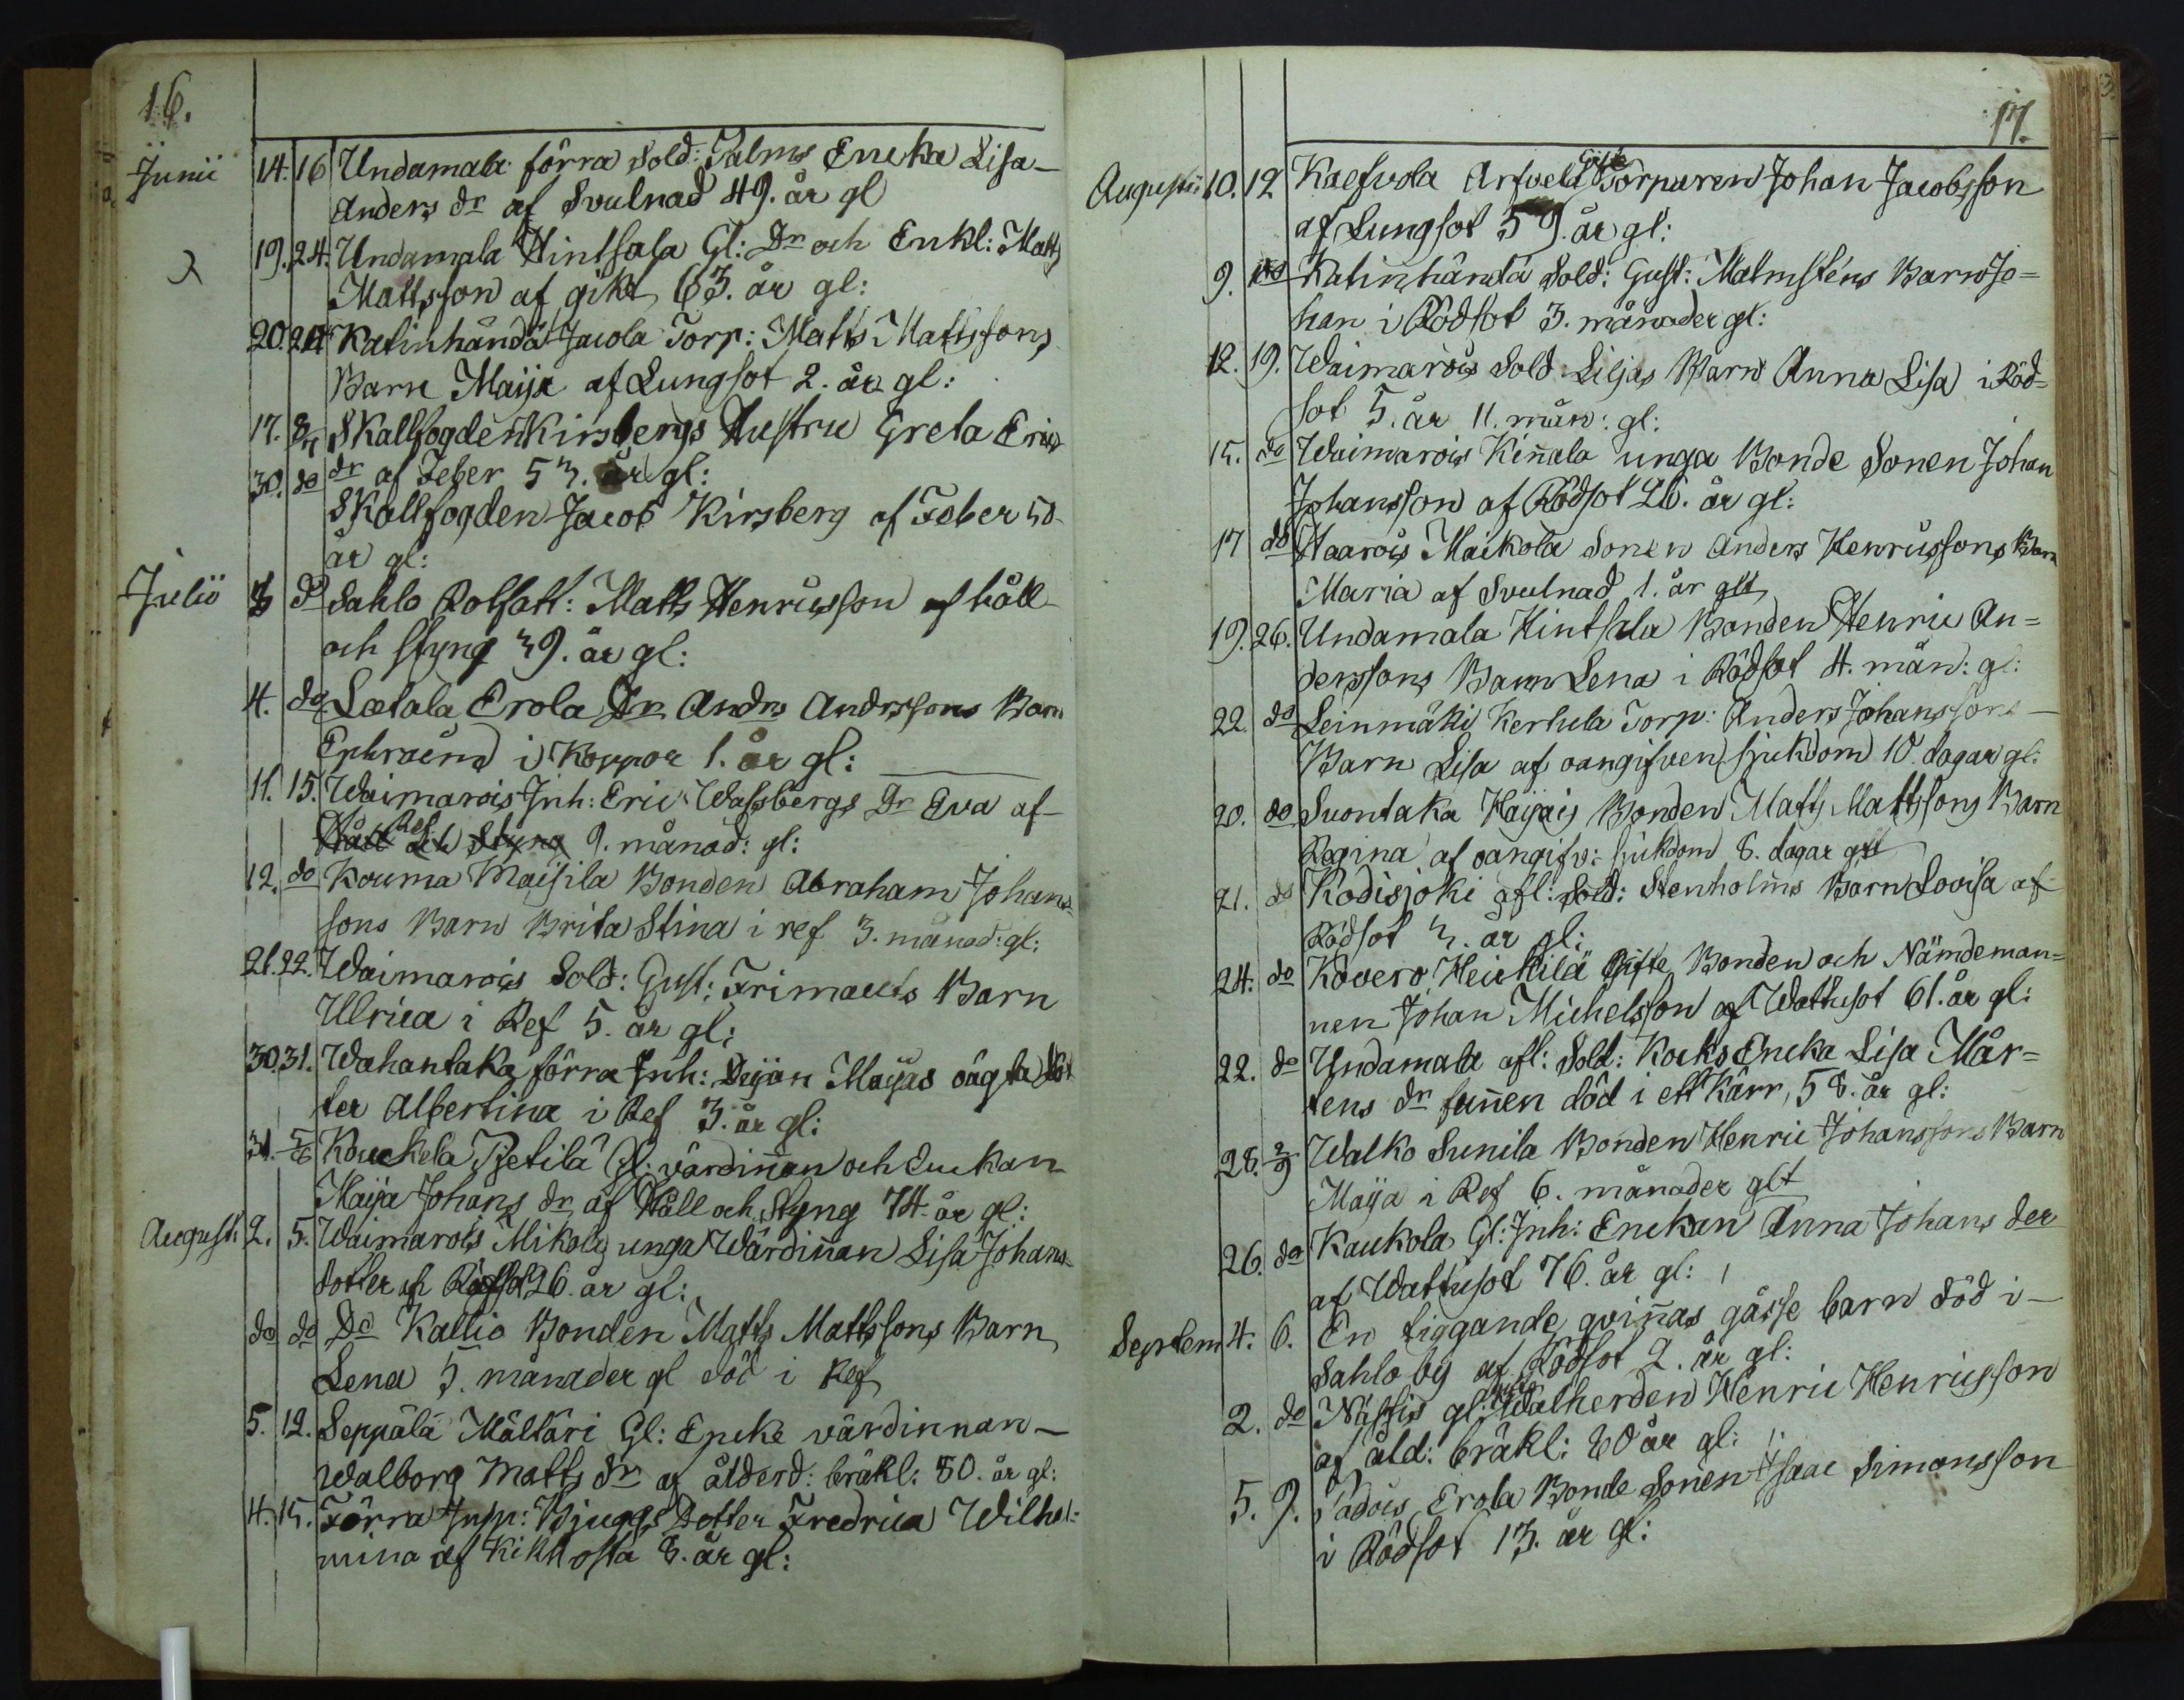 16.
Junii 14. 16 Undamala förra Sold: Palms Encka Lisa
Anders dr af Svulnad 49. år gl
19. 24. Undamala Hintsala Gl: Dr och Enkl: Matts
Mattsson af gikt 63. år gl:
20. 24 Katinhändä Jacola Torp: Matts Mattssons
Barn Maija af Lungsot 2. år gl:
17. 8/7 Skallfogden Kirsbergs Hustru Greta Erics
dr af Feber 53. år gl:
30. do Skallfogden Jacob Kirsberg af Feber 50
år gl:
Julii 3 do Sahlo Rotsatt: Matts Henricsson af håll
och styng 39. år gl:
4. do Lætala Erola Dr Andrs Andrssons Barn
Ephraim i Koppor 1. år gl:
11. 15. Waimarois Inh: Eric Wassbergs Dr Eva af
Håll och Styng Ref 9. månad: gl:
12. do Kouma Maijila Bonden Abraham Johans-
sons Barn Brita Stina i ref 3. månad: gl:
21. 22. Waimarois Sold: Gust: Frimans Barn
Ulrica i Ref 5. år gl:
30. 31. Wahantaka förra Inh: Pijan Majas oägta dot
ter Albertina i Ref 3. år gl:
31. 5/8 Kouckela Pietilä Gl: värdiñan och Enckan
Maija Johans dr af Håll och Styng 74. år gl:
August: 2. 5. Waimarois Mikola unga Wärdiñan Lisa Johans-
dotter af Rödsot 26. år gl:
do do Do Kallio Bonden Matts Mattssons Barn
Lena 5. månader gl död i Ref
5. 12. Seppälä Mältäri Gl: Encke värdinnan
Walborg Matts dr af ålderd: bräkl: 80. år gl:
4. 15. Förra Insp: Bjuggs Dotter Fredrica Wilhel:
mina af Kikhosta 8. år gl:
17.
Augustii 10. 12 Kaefvola Arfvela Gifte Torparen Johan Jacobsson
af Lungsot 59. år gl:
9. do Katinhändä Sold: Gust: Malmsténs Barn Jo=
han i Rödsot 3. månader gl:
12. 19. Waimarois Sold Liljas Barn Anna Lisa i Röd=
sot 5. år 11. mån: gl:
15. do Waimarois Kiñala unga Bonde Sonen Johan
Johansson af Rödsot 26. år gl:
17 do Haarois Maikola Sonen Anders Henricssons Barn
Maria af Svulnad 1. år glt
19. 26. Undamala Hintsala Bonden Henric An=
derssons Barn Lena i Rödsot 4. mån: gl:
22. do Leinmäki Kerhula Torp: Anders Johanssons
Barn Lisa af oangifven sjukdom 10. dagar gl:
20. do Suontaka Haijais Bonden Matts Mattssons Barn
Regina af oangifv: sjukdom 8. dagar glt
21. do Kodisjoki afl: Sold: Stenholms Barn Lovisa af
Rödsot 3. år gl:
24. do Kovero Heickilä Gifte Bonden och Nämdeman=
nen Johan Michelsson af Wattusot 61. år gl:
22. do Undamala afl: Sold: Kocks Encka Lisa Mår=
tens dr fuñen död i ett Kärr, 58. år gl:
28. 2/9 Walko Sunila Bonden Henric Johanssons Barn
Maija i Ref 6. månader glt
26. do Kaukola Gl: Inh: Enckan Anna Johans der
af Wattusot 76. år gl:
Septem 4. 6. En tiggande qviñas gåsse barn död i
Sahlo by af Rödsot 2. år gl:
2. do gl: Walherden Henric Henricsson
af åld: bräkl: 80 år gl:
5. 9. Padois Erola Bonde Sonen Isaac Simonsson
i Rödsot 13. år gl: